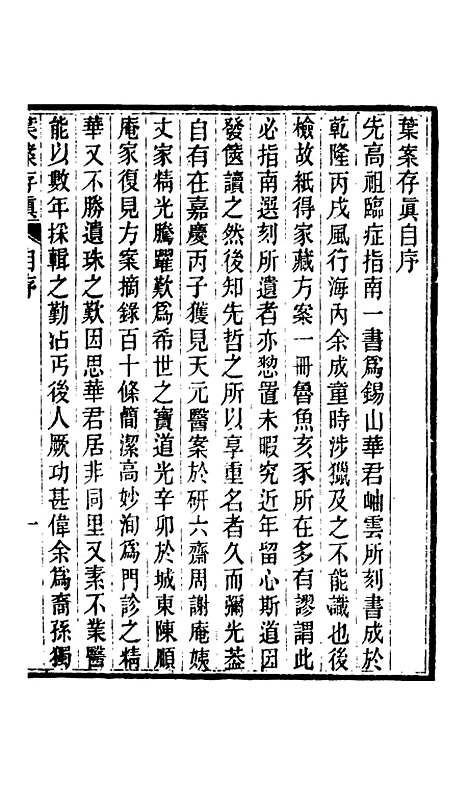 葉案存眞自序
先高祖臨症指南一書爲錫山華君岫雲所刻書成於
乾隆丙戌風行海內余成童時涉獵及之不能識也後
檢故紙得家藏方案一冊魯魚亥豕所在多有謬謂此
必指南選刻所遺者亦愸置未暇究近年留心斯道因
發篋讀之然後知先哲之所以享重名者久而彌光葢
自有在嘉慶丙子獲見天元醫案於硏六齋周謝庵姨
丈家精光騰躍歎爲希世之寶道光辛卯於城東陳順
庵家復見方案摘錄百十條簡潔高妙洵爲門診之精
華又不勝遺珠之歎因思華君居非同里又素不業醫
能以數年採輯之勤沾丐後人厥功甚偉余爲裔孫獨
葉案存眞 自序 一